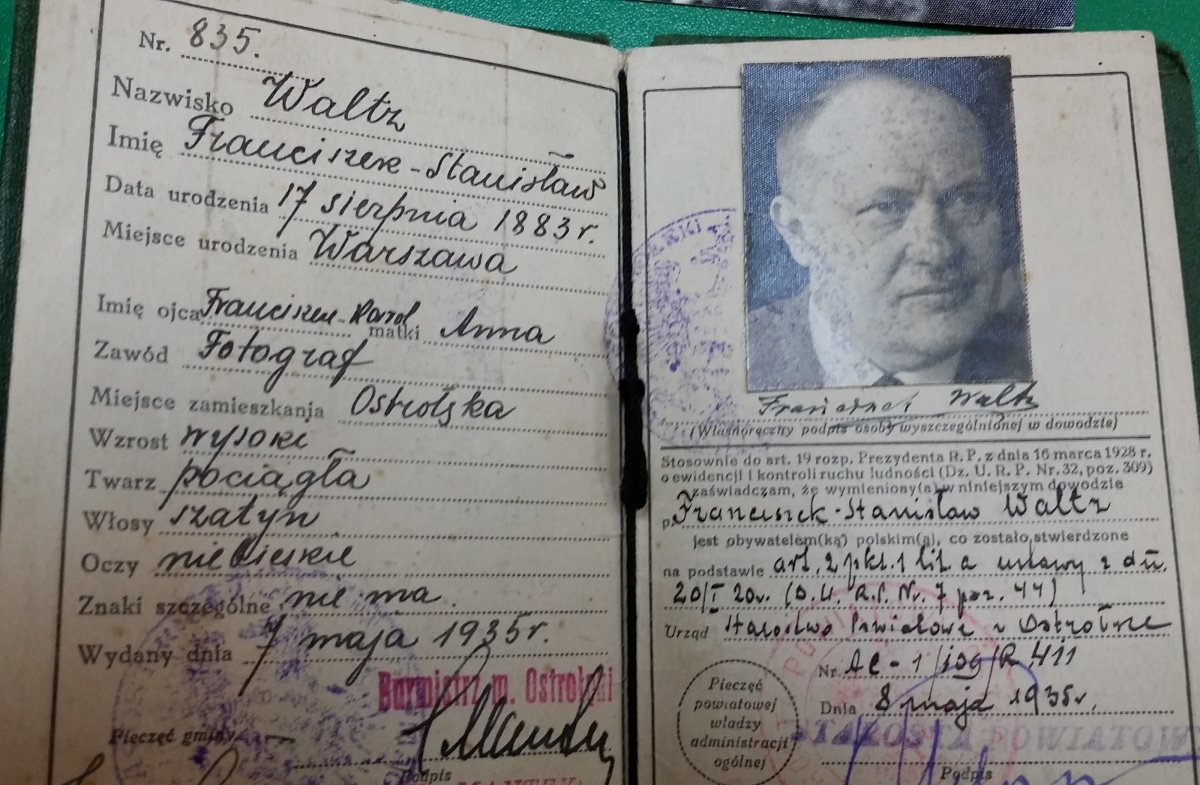 Nr. 835.
Nazwisko Waltz
Imię Franciszek-Stanisław
Data urodzenia 17 sierpnia 1883 r.
Miejsce urodzenia Warszawa
Imię ojca Franciszek-Karol matki Anna
Zawód Fotograf
Miejsce zamieszkania Ostrołęka
Wzrost wysoki
Twarz pociągła
Włosy szatyn
Oczy niebieskie
Znaki szczególne nie ma.
Wydany dnia 7 maja 1935 r.
Burmistrz m. Ostrołęki
Pieczęć gminy
Podpis
Franciszek Waltz
(Własnoręczny podpis osoby wyszczególnionej w dowodzie)
Stosownie do art. 19 rozp. Prezydenta R. P. z dnia 16 marca 1928 r.
o ewidencji i kontroli ruchu ludności (Dz. U. R. P. Nr. 32, poz. 309)
zaświadczam, że wymieniony(a) w niniejszym dowodzie
p. Franciszek-Stanisław Waltz
jest obywatelem(ką) polskim(ą), co zostało stwierdzone
na podstawie art. 2 pkt. 1 lit. a ustawy z dn.
20/I 20 r. (D.U. R.P. Nr. 7 poz. 44)
Urząd Starostwo Powiatowe w Ostrołęce
Nr. AC-1/109/R 411
Dnia 8 maja 1935 r.
Pieczęć
powiatowej
władzy
administracji
ogólnej
STAROSTA POWIATOW
Podpis